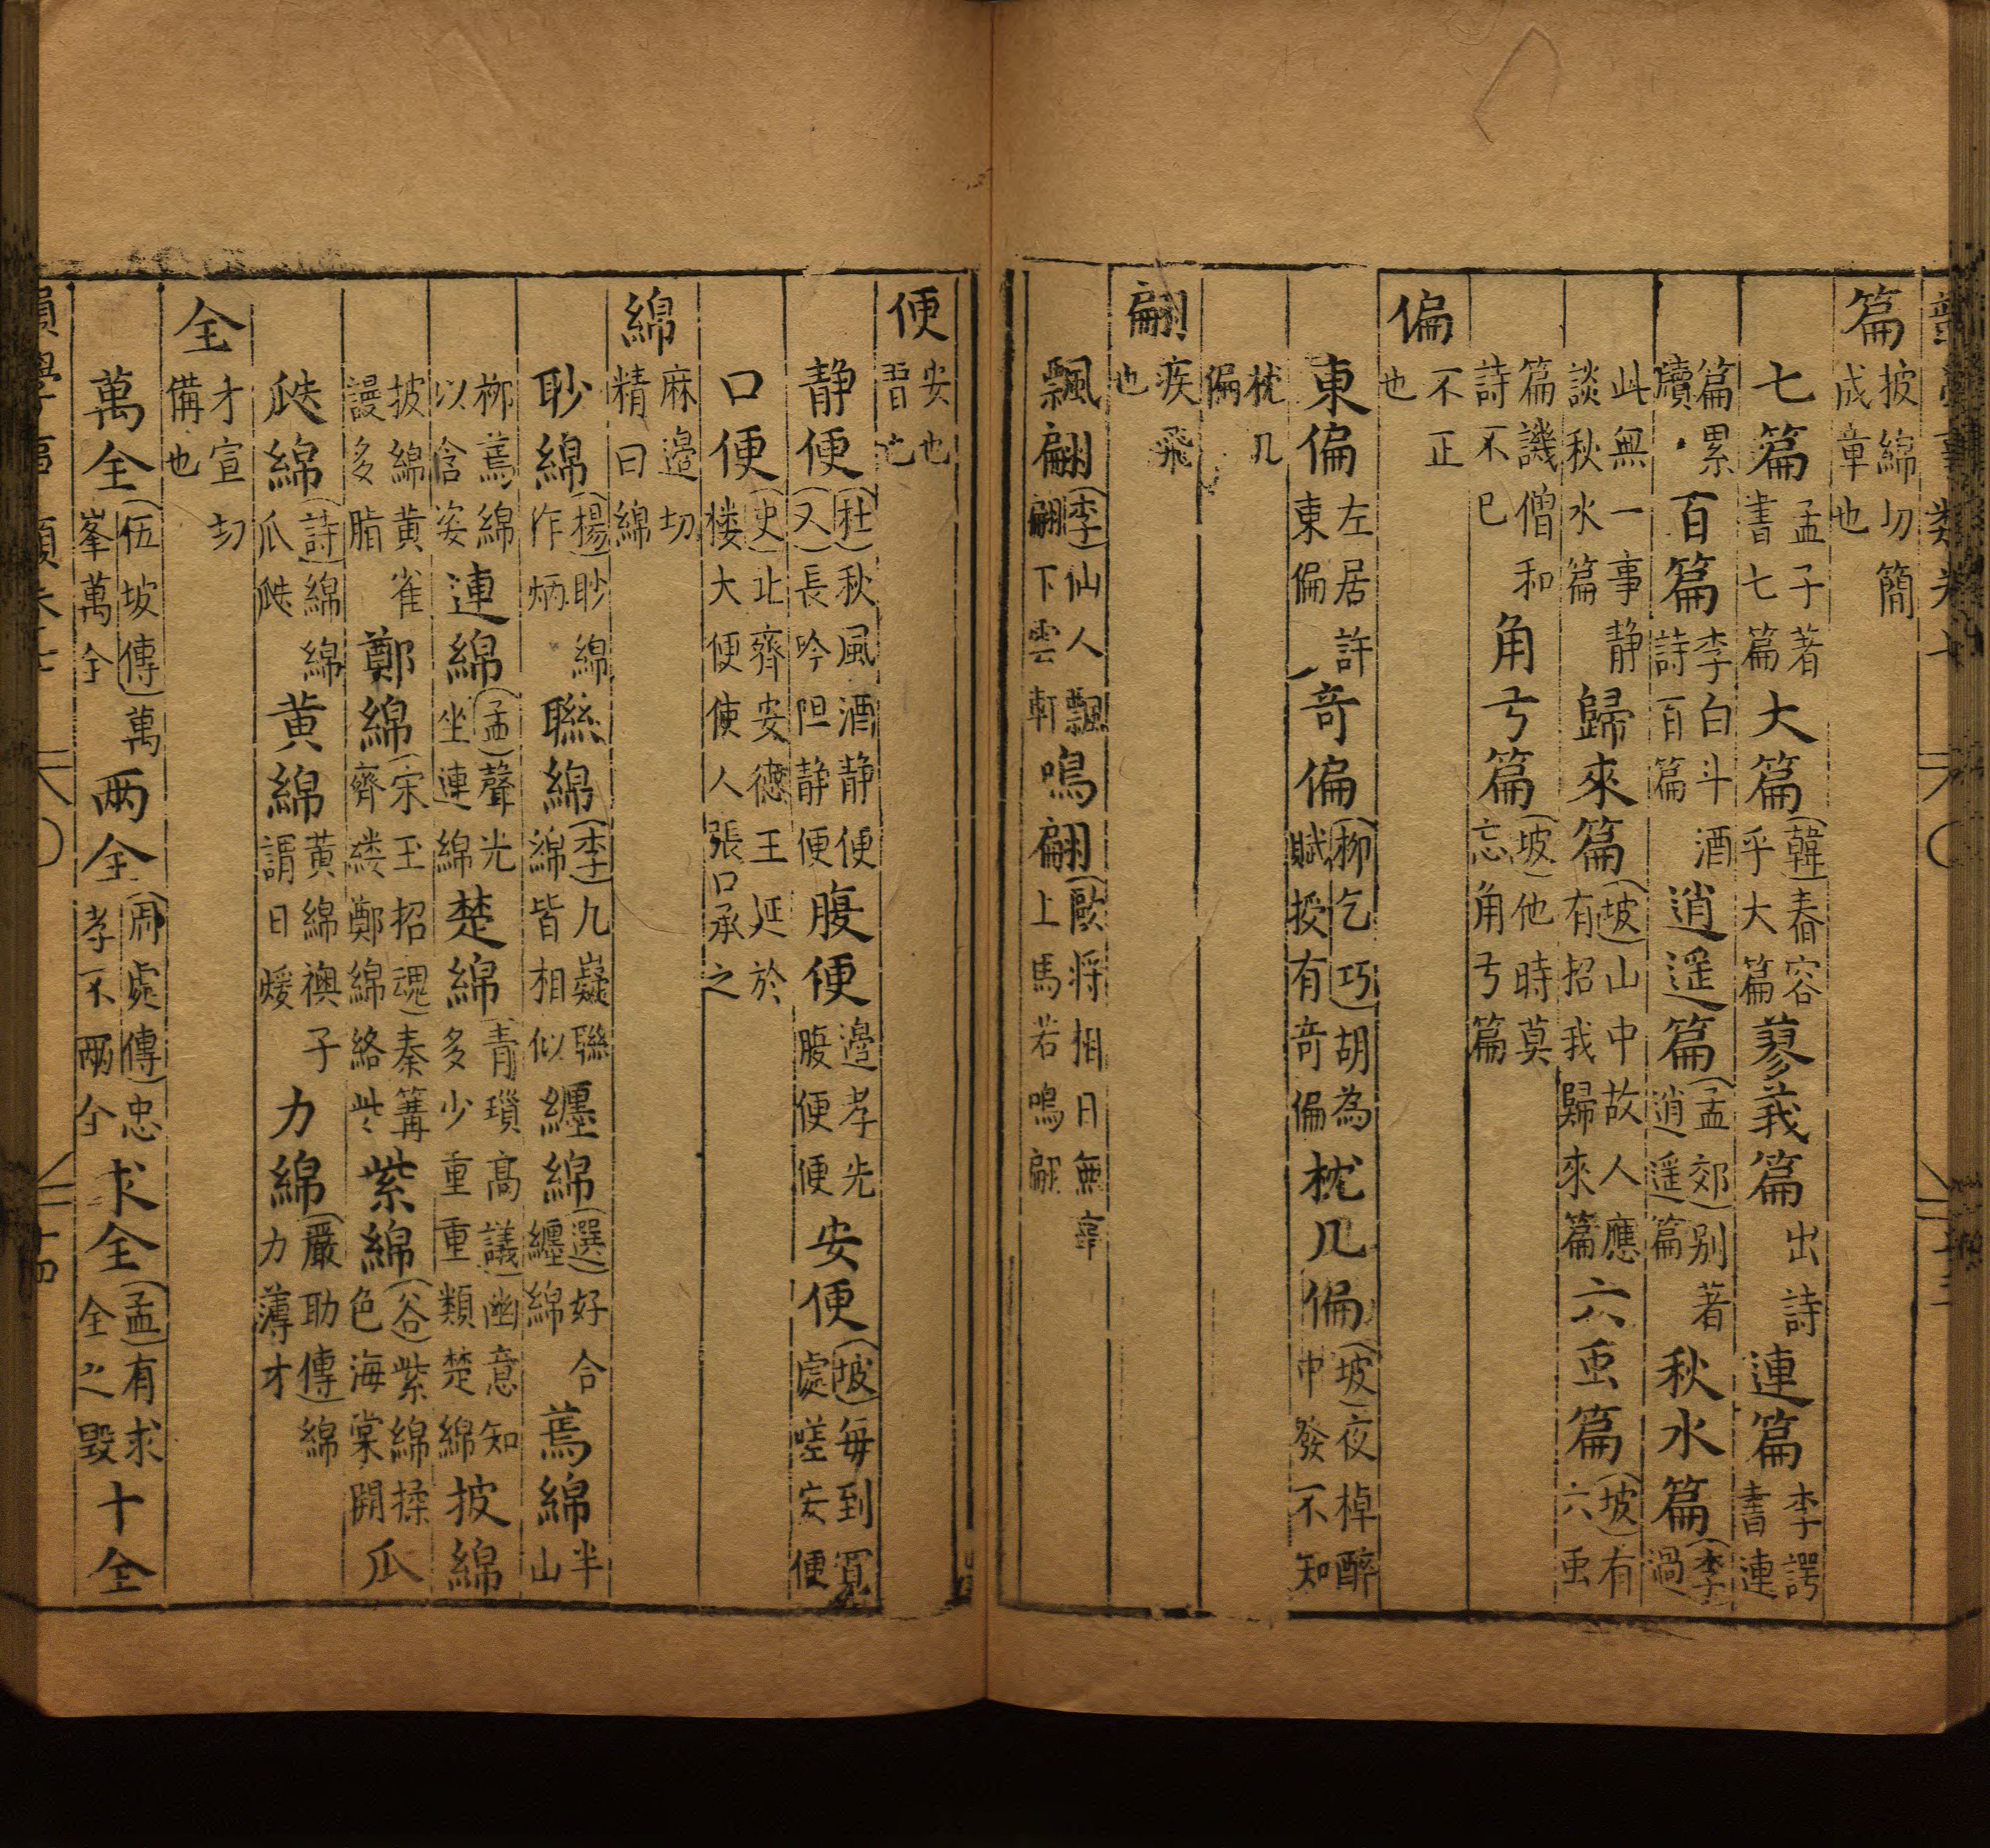 篇披綿切簡成章也
七篇孟子著書七篇大篇(韓)春容乎大篇蓼莪篇出詩連篇李諤書連
篇累牘百篇李白斗酒詩百篇逍遥篇(孟郊)别著逍遥篇秋水篇(李)過
此無一事静談秋水篇歸來篇(坡)山中故人應有招我歸來篇六䖝篇(坡)有六䖝
篇譏僧和詩不已角弓篇(坡)他時莫忘角弓篇
偏不正也
東偏左居許東偏竒偏(柳乞巧)胡為賦授有竒偏枕几偏(坡)夜棹醉中發不知
枕几偏
翩疾飛也
飄翩(李)仙人飄翩下雲軿鳴翩(歐)将相日無辜上馬若鳴翩
便安也習也
静便(杜)秋風酒静便(又)長吟阻静便腹便邊孝先腹便便安便(坡)每到寛處嗟安便
口便(史)北齊安德王延於楼大便使人張口承之
綿麻邉切精曰綿
眇綿(楊)眇綿作炳聮綿(李)九嶷聮綿皆相似纒綿(選)好合纒綿蔫綿半山
柳蔫綿以含姿連綿(孟)聲光坐連綿楚綿(青瑣高議)幽意知多少重重類楚綿披綿
披綿黄雀謾多脂鄭綿(宋玉招魂)秦篝齊縷鄭綿絡些紫綿(谷)紫綿揉色海棠開瓜
瓞綿(詩)綿綿瓜瓞黄綿黄綿襖子謂日煖力綿(嚴助傳)綿力薄才
全才宣切備也
萬全(伍坡傳)萬峯萬全两全(周處傳)忠孝不兩全求全(孟)有求全之毀十全